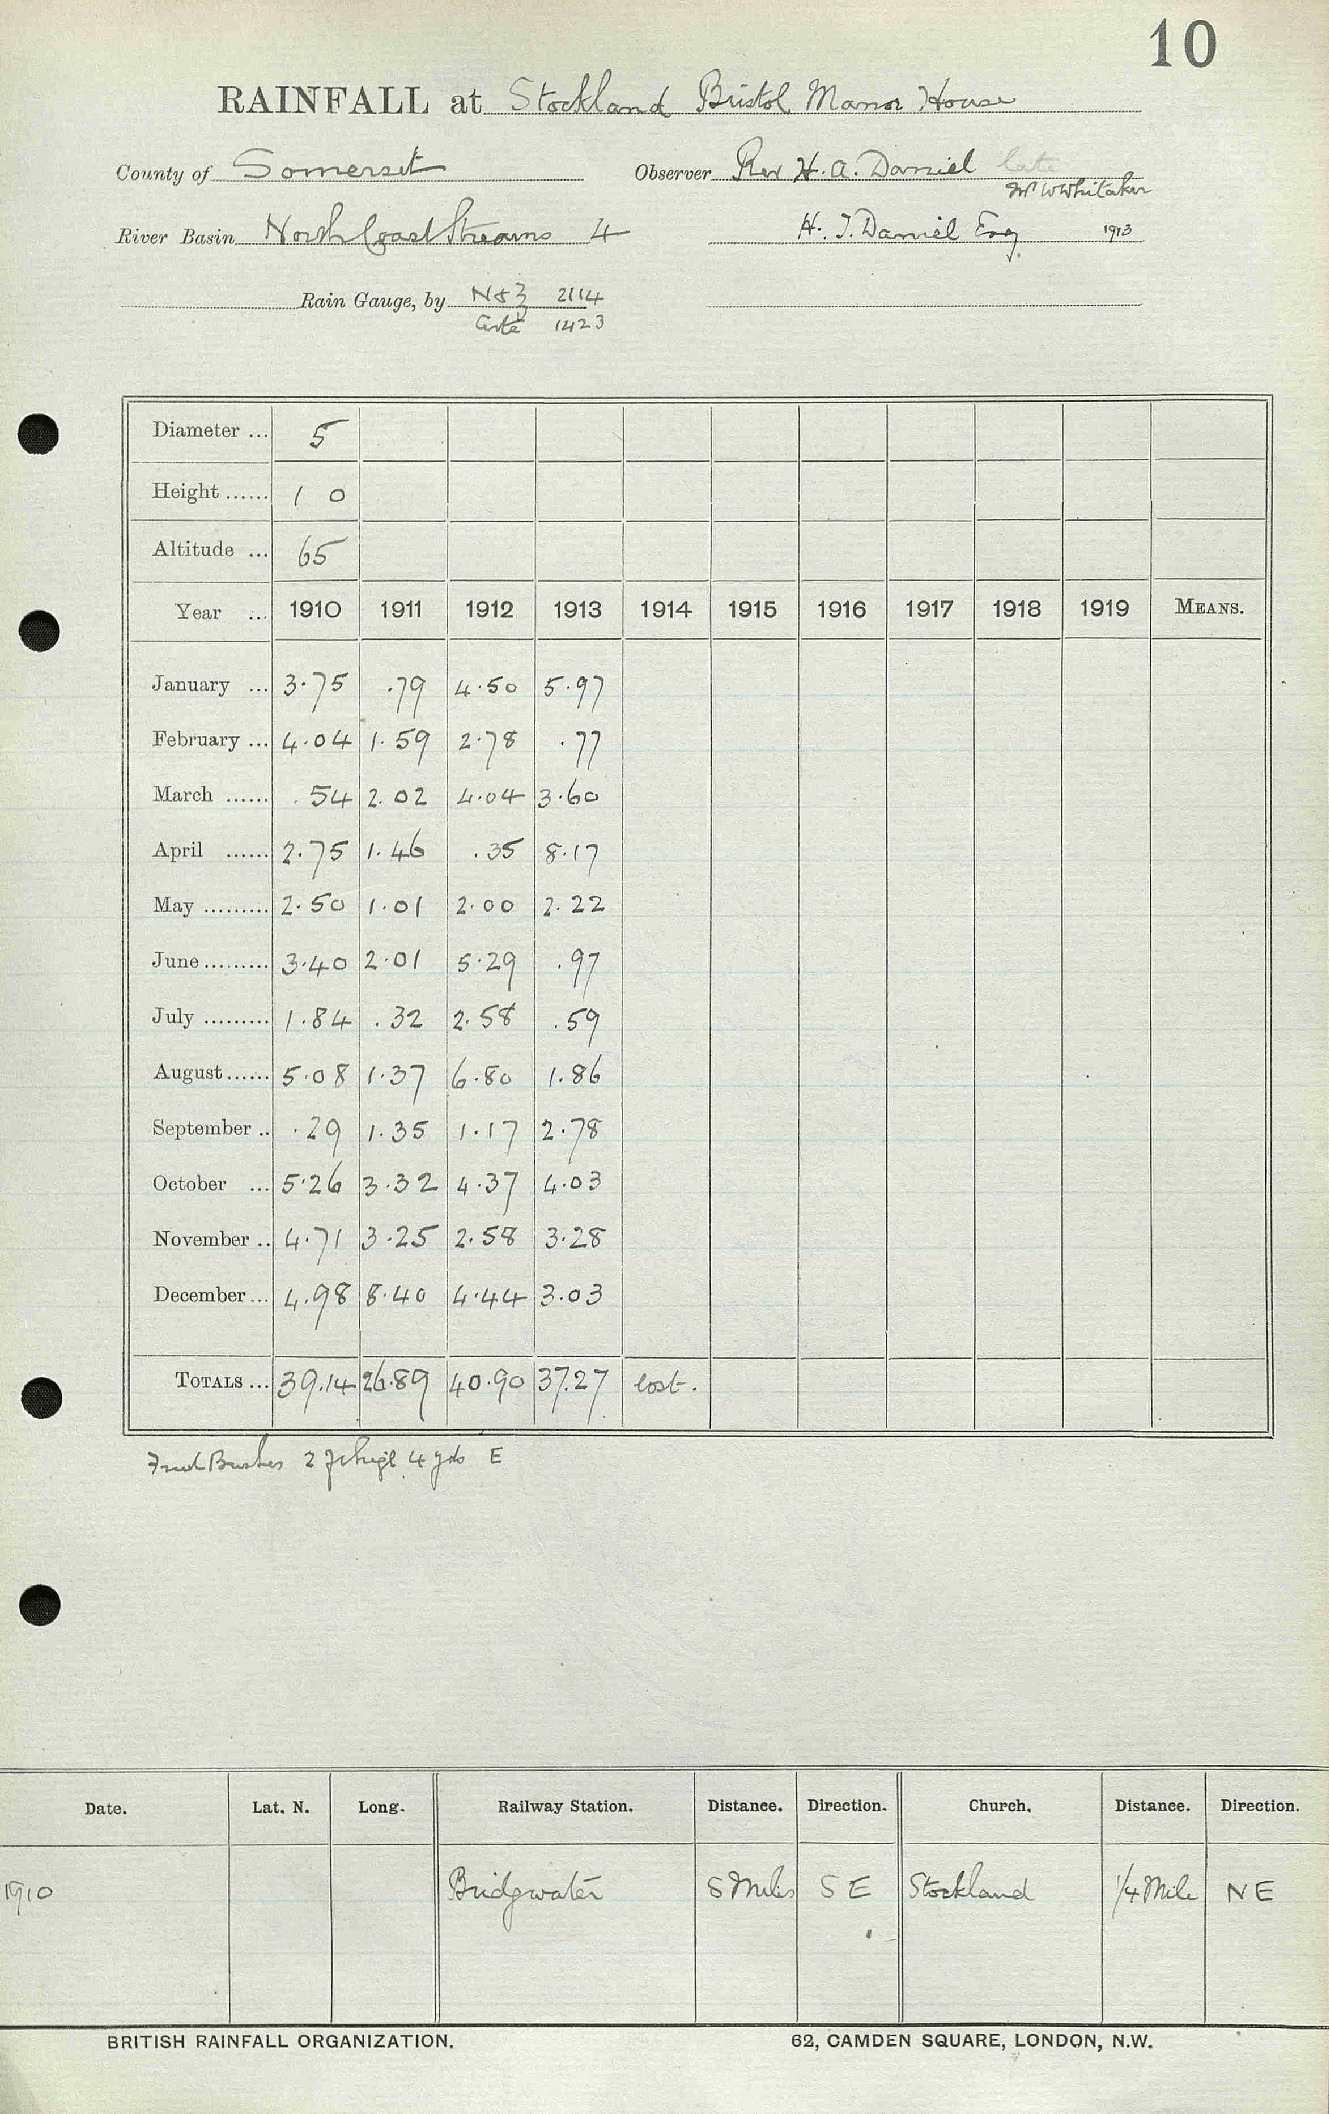 10
RAINFALL at Stockland Bristol Manor House
County of Somerset Observer Rev H. A. Daniel late
Mr W Whitaker
River Basin North Coast Streams 4 H. T. Daniel Esq 1913
Rain Gauge, by N & Z 2114
Certe 1423
Diameter ... 5
Height ...... 1 0
Altitude ... 65
Year ... 1910 1911 1912 1913 1914 1915 1916 1917 1918 1919 MEANS.
January ... 3.75 .79 4.50 5.97
February ... 4.04 1.59 2.78 .77
March ...... .54 2.02 4.04 3.60
April ...... 2.75 1.46 .35 8.17
May ......... 2.50 1.01 2.00 2.22
June ......... 3.40 2.01 5.29 .97
July ......... 1.84 .32 2.58 .59
August ...... 5.08 1.37 6.80 1.86
September .. .29 1.35 1.17 2.78
October ... 5.26 3.32 4.37 4.03
November .. 4.71 3.25 2.58 3.28
December ... 4.98 8.40 4.44 3.03
TOTALS ... 39.14 26.89 40.90 37.27 lost.
Fruit Bushes 2 ft high 4 yds E
Date. Lat. N. Long. Railway Station. Distance. Direction. Church. Distance. Direction.
1910 Bridgwater 8 Miles S E Stockland 1/4 Mile N E
BRITISH RAINFALL ORGANIZATION. 62, CAMDEN SQUARE, LONDON, N.W.